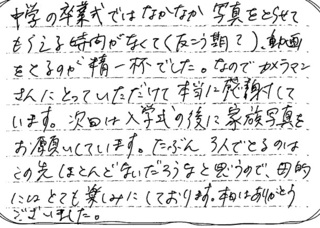 中学の卒業式ではなかなか写真をとらせて
もらえる時間がなくて(反こう期?)、動画
をとるのが精一杯でした。なのでカメラマン
さんにとっていただけて本当に感謝して
います。次回は入学式の後に家族写真を
お願いしています。たぶん3人でとるのは
この先ほとんどないだろうなと思うので、母的
にはとても楽しみにしております。本日はありがとう
ございました。